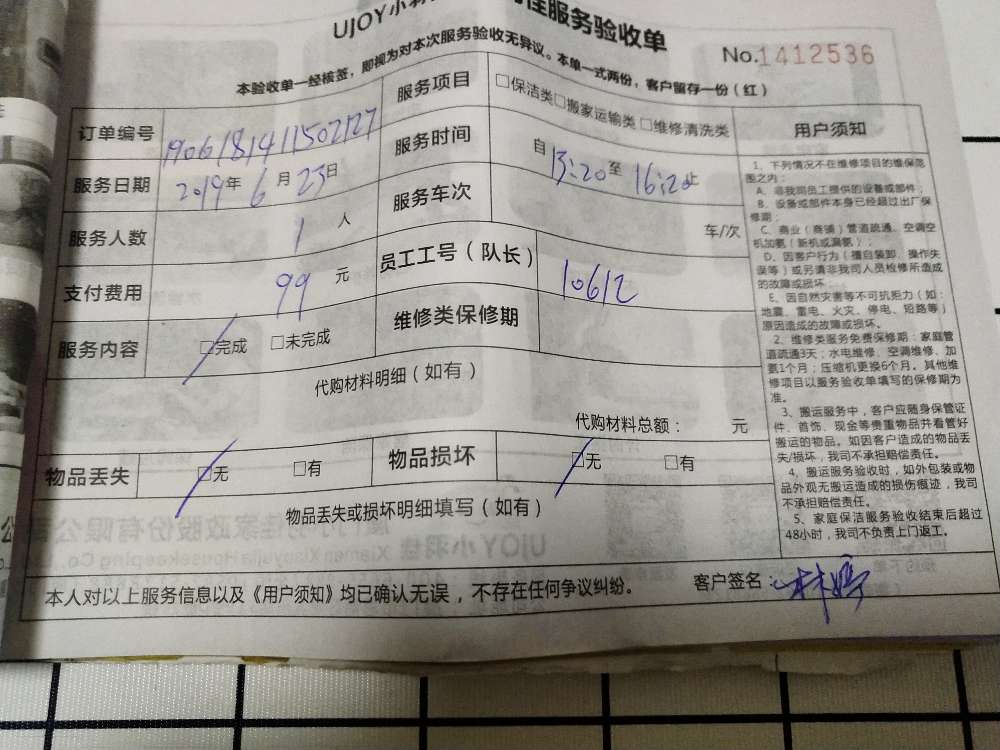 UJOY小羽
佳服务验收单
No.1412536
本验收单一经核签，即视为对本次服务验收无异议。本单一式两份，客户留存一份（红）
订单编号 1906181411502127 服务项目 □保洁类□搬家运输类 □维修清洗类
服务日期 2019年 6月 23日 服务时间 自 13:20 至 16:20止
服务人数 1 人 服务车次 车/次
支付费用 99 元 员工工号（队长） 10612
服务内容 □完成 □未完成 维修类保修期
代购材料明细（如有）
代购材料总额： 元
物品丢失 □无 □有 物品损坏 □无 □有
物品丢失或损坏明细填写（如有）
用户须知
1、下列情况不在维修项目的维保范
围之内：
A、非我司员工提供的设备或部件；
B、设备或部件本身已经超过出厂保
修期；
C、商业（商铺）管道疏通、空调空
机加氨（新机或漏氨）；
D、因客户行为（擅自装卸、操作失
误等）或另请非我司人员检修所造成
的故障或损坏；
E、因自然灾害等不可抗拒力（如：
地震、雷电、火灾、停电、短路等）
原因造成的故障或损坏。
2、维修类服务免费保修期：家庭管
道疏通3天；水电维修、空调维修、加
氨1个月；压缩机更换6个月。其他维
修项目以服务验收单填写的保修期为
准。
3、搬运服务中，客户应随身保管证
件、首饰、现金等贵重物品并看管好
搬运的物品。如因客户造成的物品丢
失/损坏，我司不承担赔偿责任。
4、搬运服务验收时，如外包装或物
品外观无搬运造成的损伤痕迹，我司
不承担赔偿责任。
5、家庭保洁服务验收结束后超过
48小时，我司不负责上门返工。
本人对以上服务信息以及《用户须知》均已确认无误，不存在任何争议纠纷。 客户签名：林婷